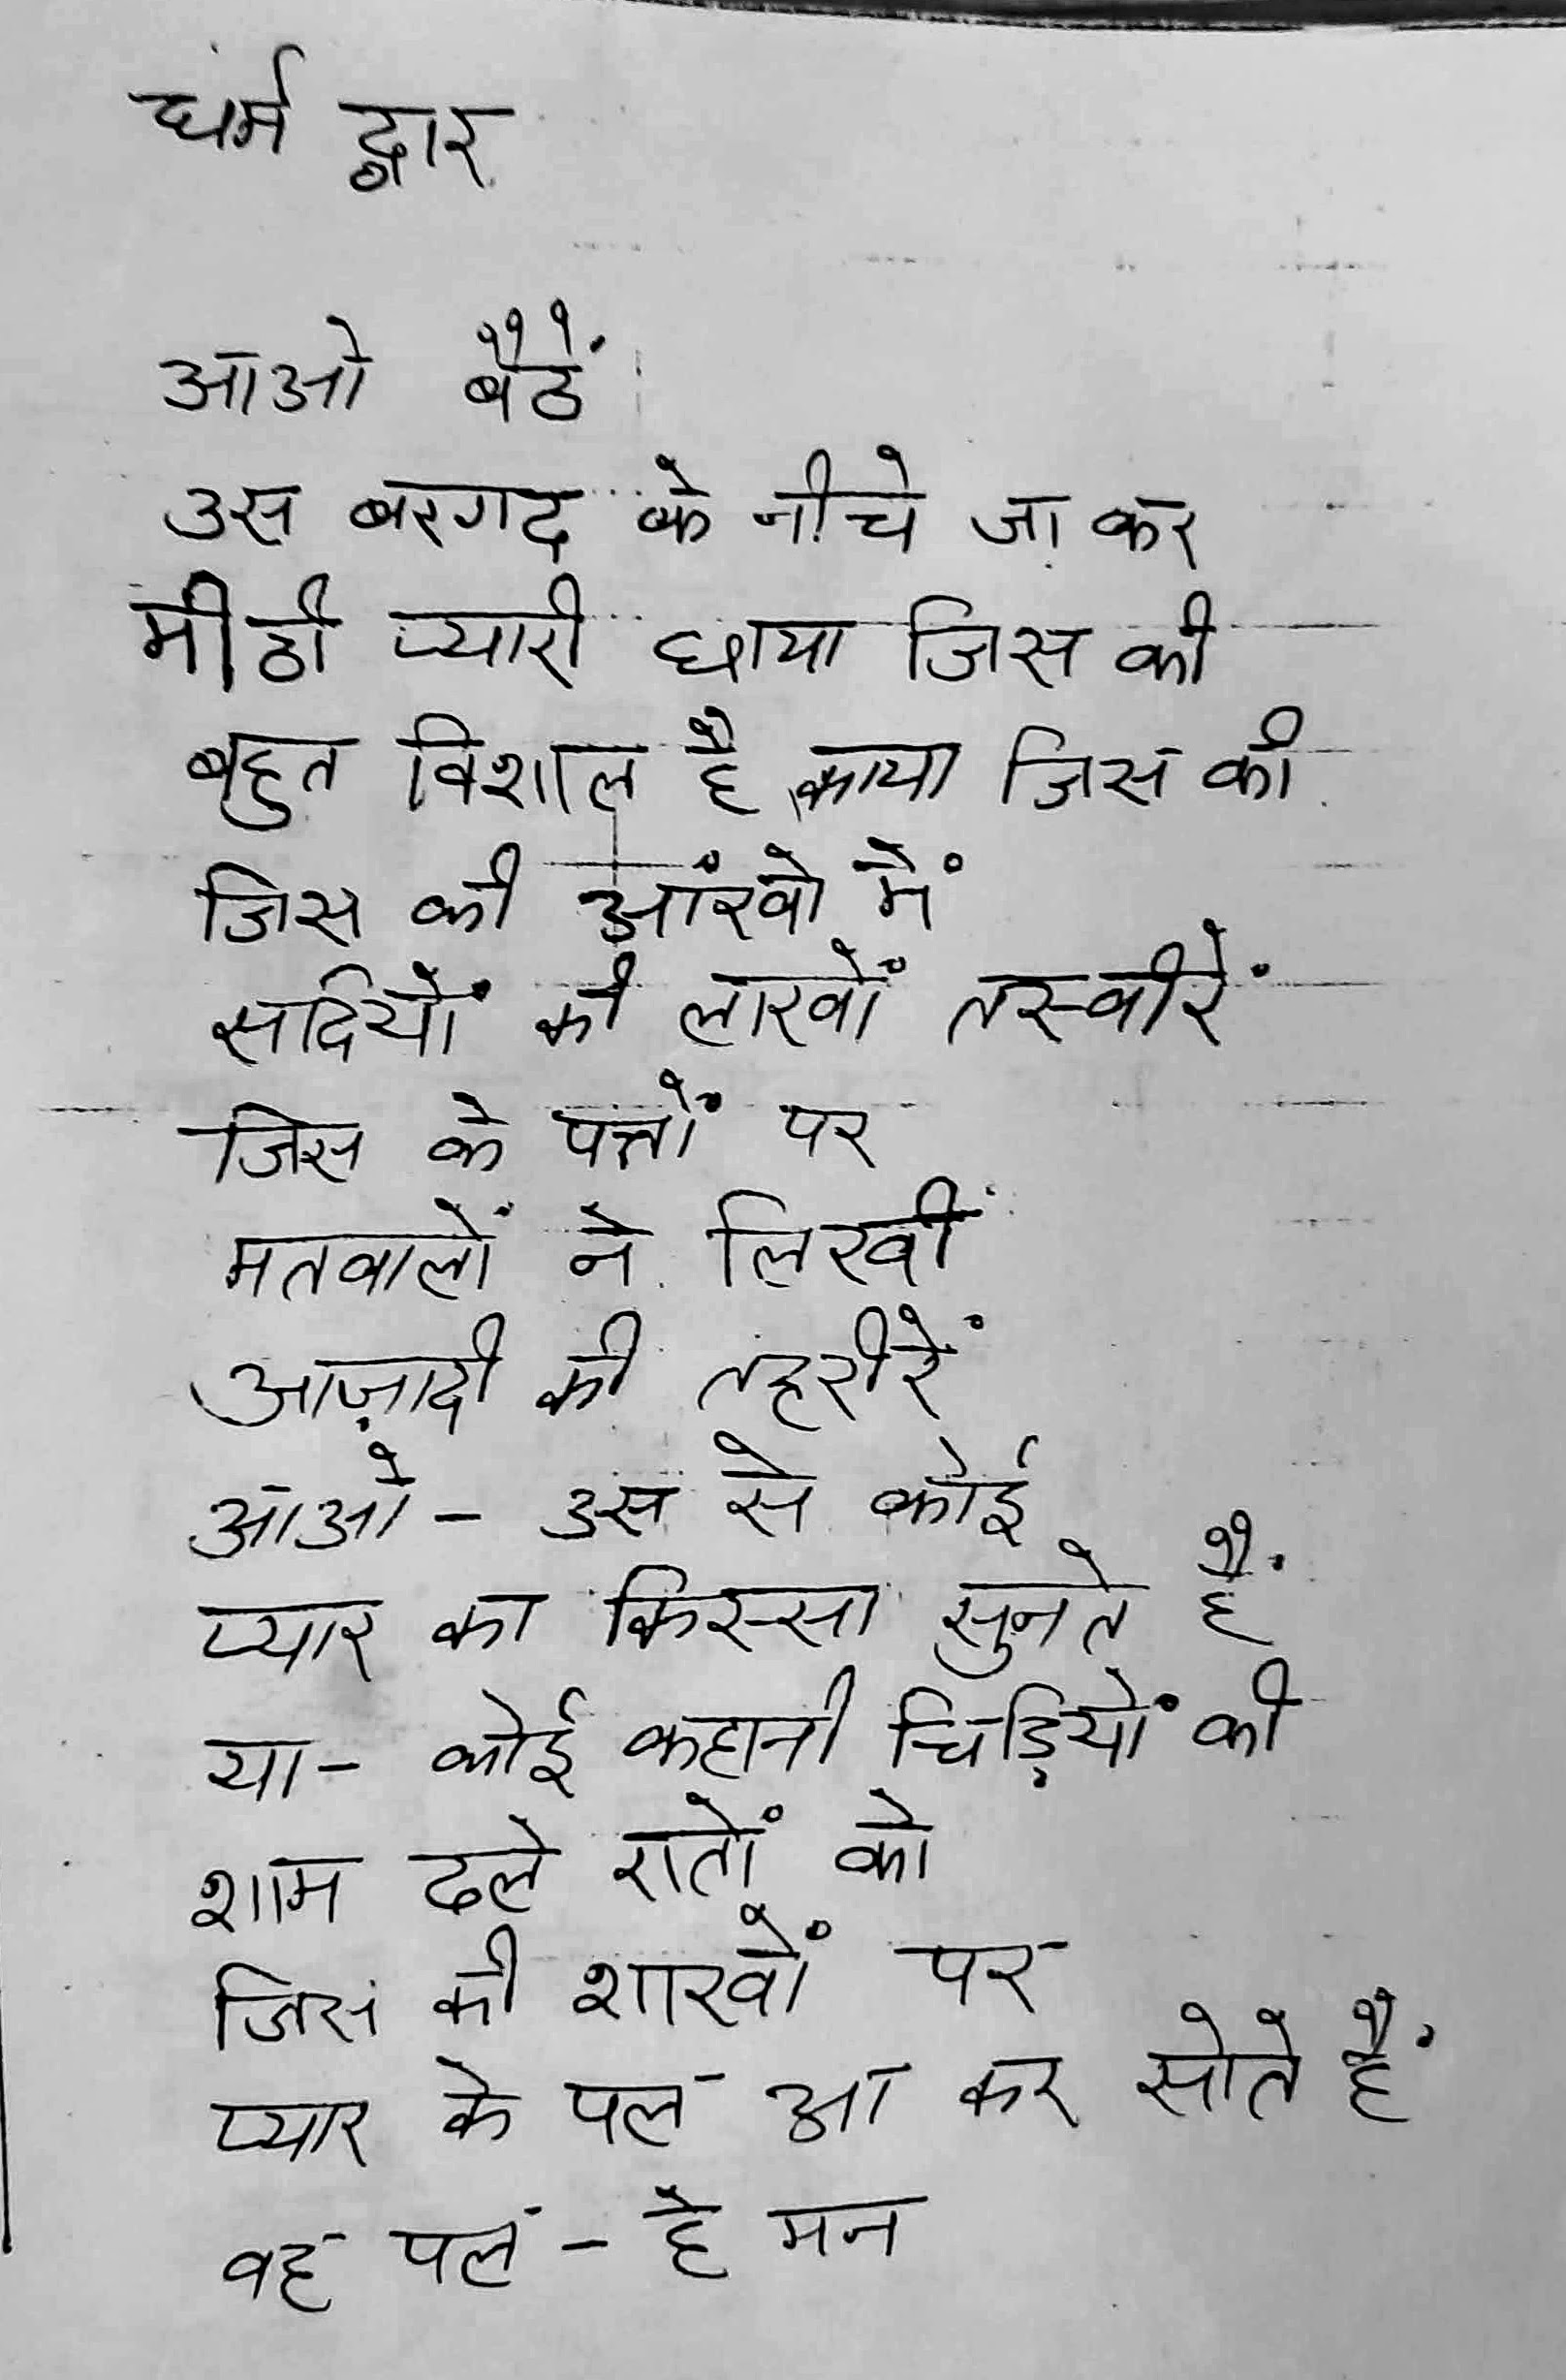 धर्म द्वार
आओ बैठें
उस बरगद के नीचे जा कर
मीठी प्यारी छाया जिस की
बहुत विशाल है काया जिस की
जिस की आंखों में
सदियों की लाखों तस्वीरें
जिस के पत्तों पर
मतवालों ने लिखीं
आज़ादी की तहरीरें
आओ - उस से कोई
प्यार का किस्सा सुनते हैं
या - कोई कहानी चिड़ियों की
शाम ढले रातों को
जिस की शाखों पर
प्यार के पल आ कर सोते हैं
वह पल - हे मन